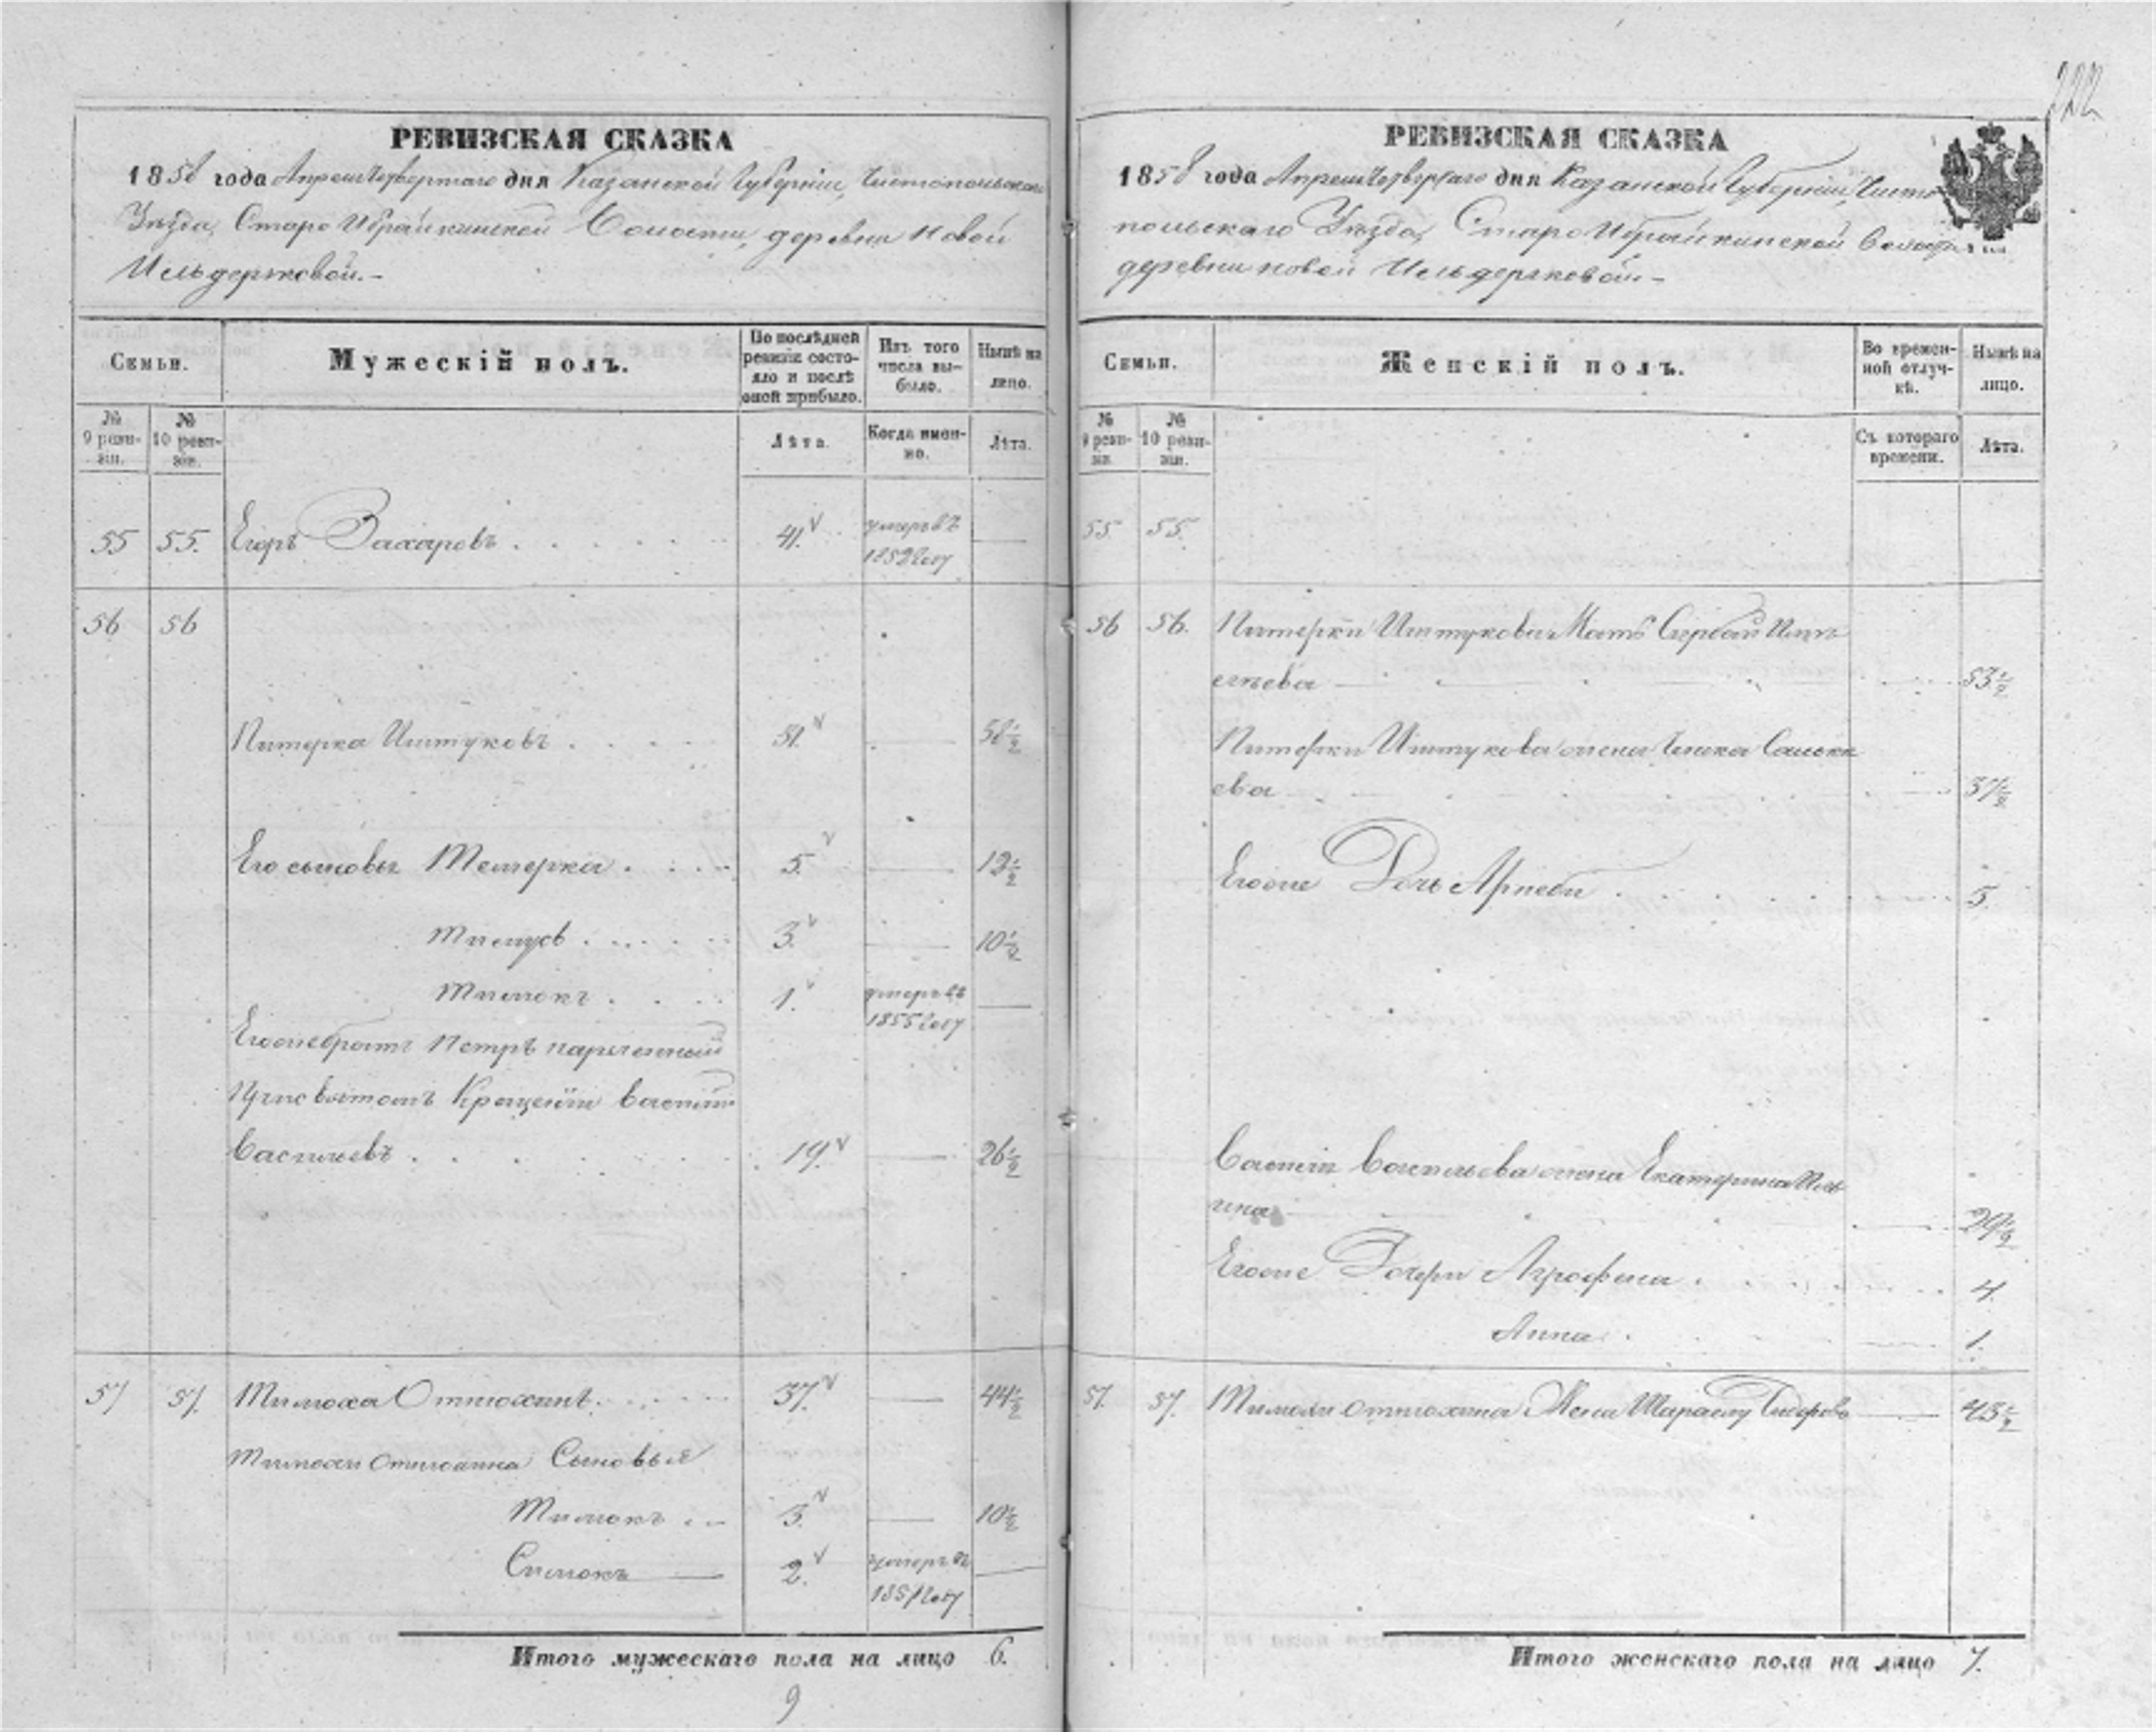 222
РЕВИЗСКАЯ СКАЗКА
1858 года Апреля Четвертаго дня Казанской Губернии, Чистопольскаго
Уѣзда, Старо Ибрайкинской Волости, деревни Новой
Ильдеряковой.-
Семьи.
Мужескій полъ.
По послѣдней ревизіи состояло и послѣ оной прибыло.
Изъ того числа выбыло.
Нынѣ на лицо.
№ 9 ревизіи.
№ 10 ревизіи.
Лѣта.
Когда именно.
Лѣта.
55 55. Егоръ Захаровъ 41. умеръ въ
1852 году
56 56
Питерка Иштуковъ 51. — 58 1/2
Его сыновья Темерка 5. — 12 1/2
3. — 10 1/2
1. умеръ въ —
1855 году
Егоже братъ Петръ нареченный
Василій
Васильевъ 19. — 26 1/2
57 57. Тимоха 37. — 44 1/2
Тимохи Сыновья
Тимокъ 3. — 10 1/2
Симокъ 2. умеръ въ —
1851 году
Итого мужескаго пола на лицо 6.
9
РЕВИЗСКАЯ СКАЗКА
1858 года Апреля Четвертаго дня Казанской Губерніи, Чисто
польскаго Уѣзда, Старо Ибрайкинской Волости
деревни новой Ильдеряковой-
Семьи.
Женскій полъ.
Во временной отлучкѣ.
Нынѣ на лицо.
№ 9 ревизіи.
№ 10 ревизіи.
Съ котораго времени.
Лѣта.
55. 55.
56 56. Питерки Иштукова Мать
53 1/2
Питерки Иштукова жена
ева 37 1/2
Егоже Дочь 5
Василія Васильева жена Екатерина Иль
ина 29 1/2
Егоже Дочери Агрофена 4.
Анна 1.
57. 57. Тимохи Жена — 43 1/2
Итого женскаго пола на лицо 7.